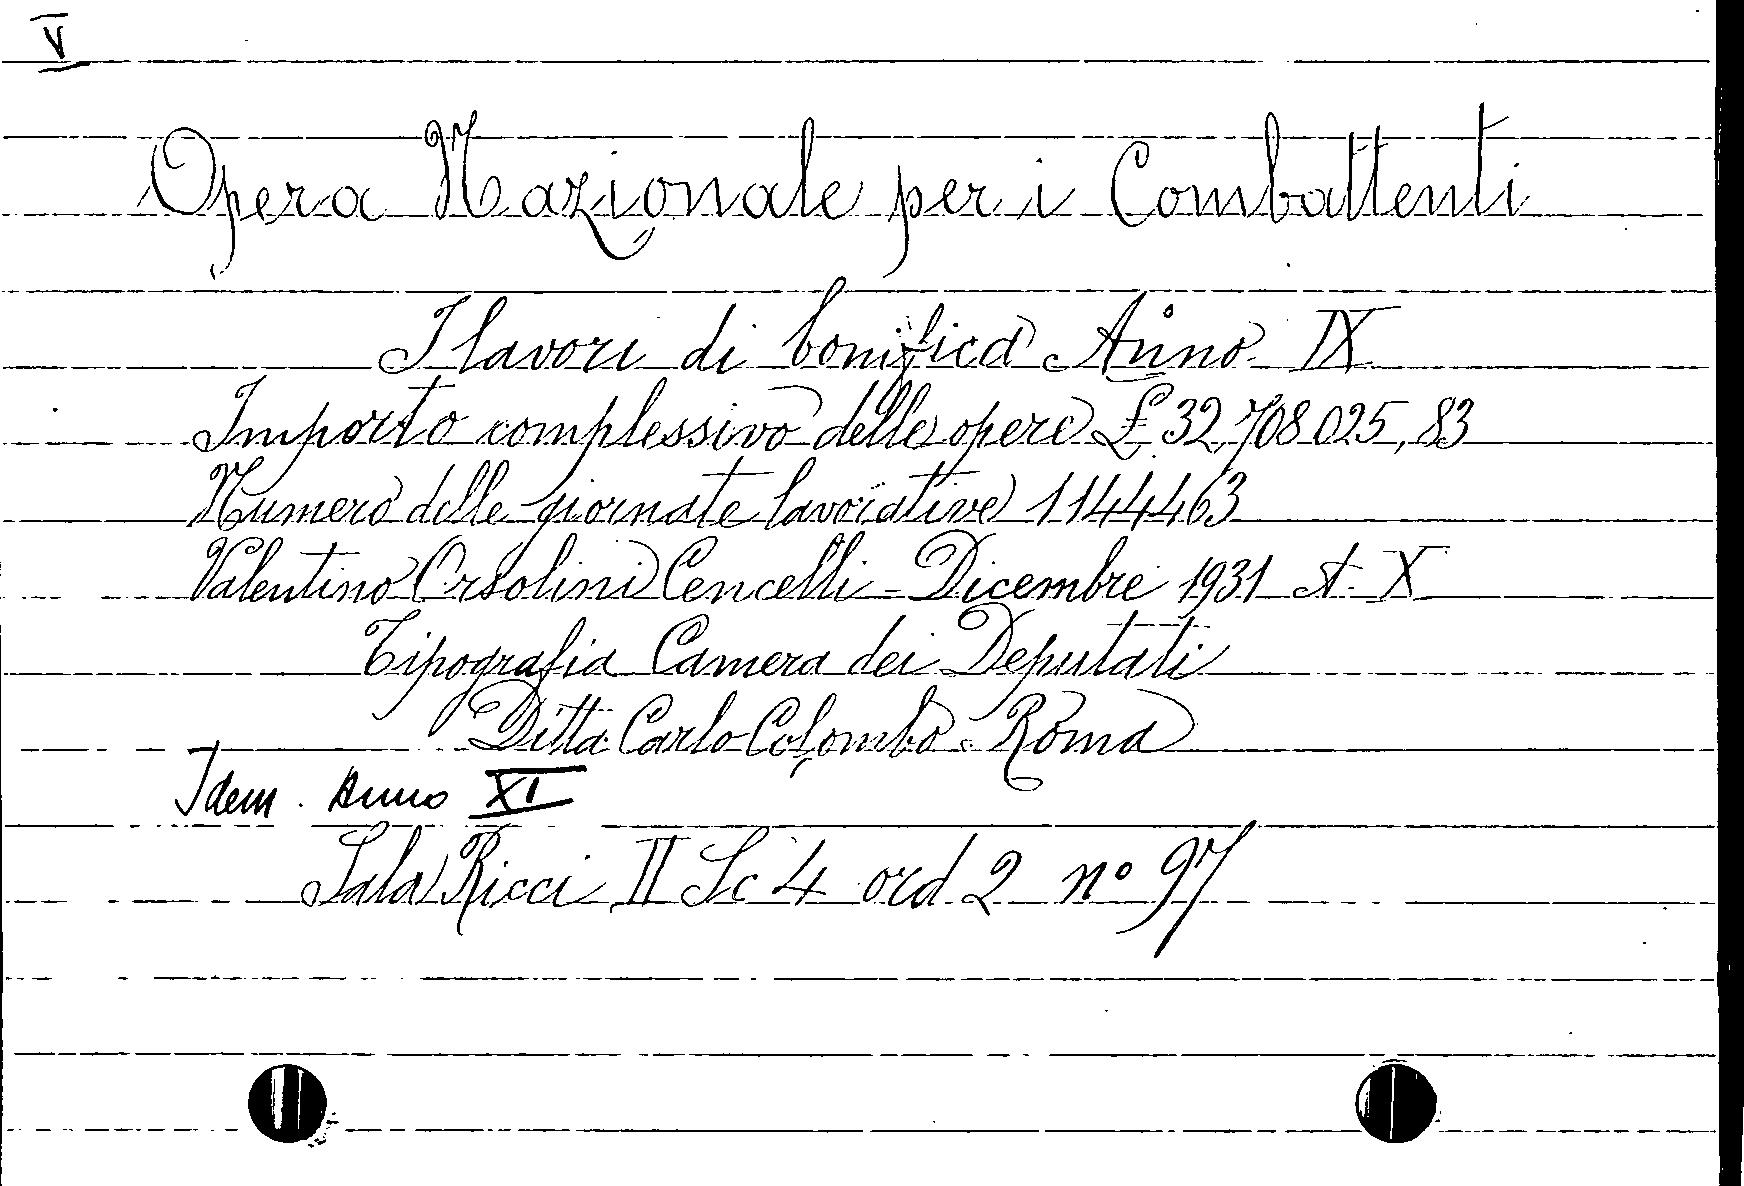 V
Opera Nazionale per i Combattenti
I lavori di bonifica Anno IX
Importo complessivo delle opere £ 32,708 025,83
Numero delle giornate lavorative 1144463
Valentino Orsolini Cencelli - Dicembre 1931 A. X
Tipografia Camera dei Deputati
Ditta Carlo Colombo - Roma
Idem. Anno XI
Sala Ricci II Sc 4 ord 2 n° 97